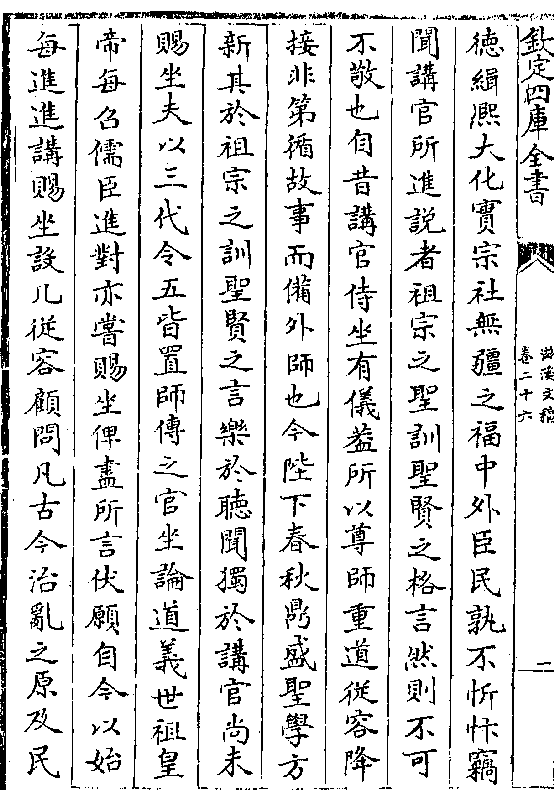 欽定四庫全書
滋溪文稿
卷二十六
二
德緝熈大化實宗社無疆之福中外臣民孰不忻忭竊
聞講官所進説者祖宗之聖訓聖賢之格言然則不可
不敬也自昔講官侍坐有儀葢所以尊師重道從容降
接非第循故事而備外師也今陛下春秋鼎盛聖學方
新其於祖宗之訓聖賢之言樂於聽聞獨於講官尚未
賜坐夫以三代令五皆置師傅之官坐論道義世祖皇
帝每召儒臣進對亦嘗賜坐俾盡所言伏願自今以始
每進進講賜坐設几從容顧問凡古今治亂之原及民